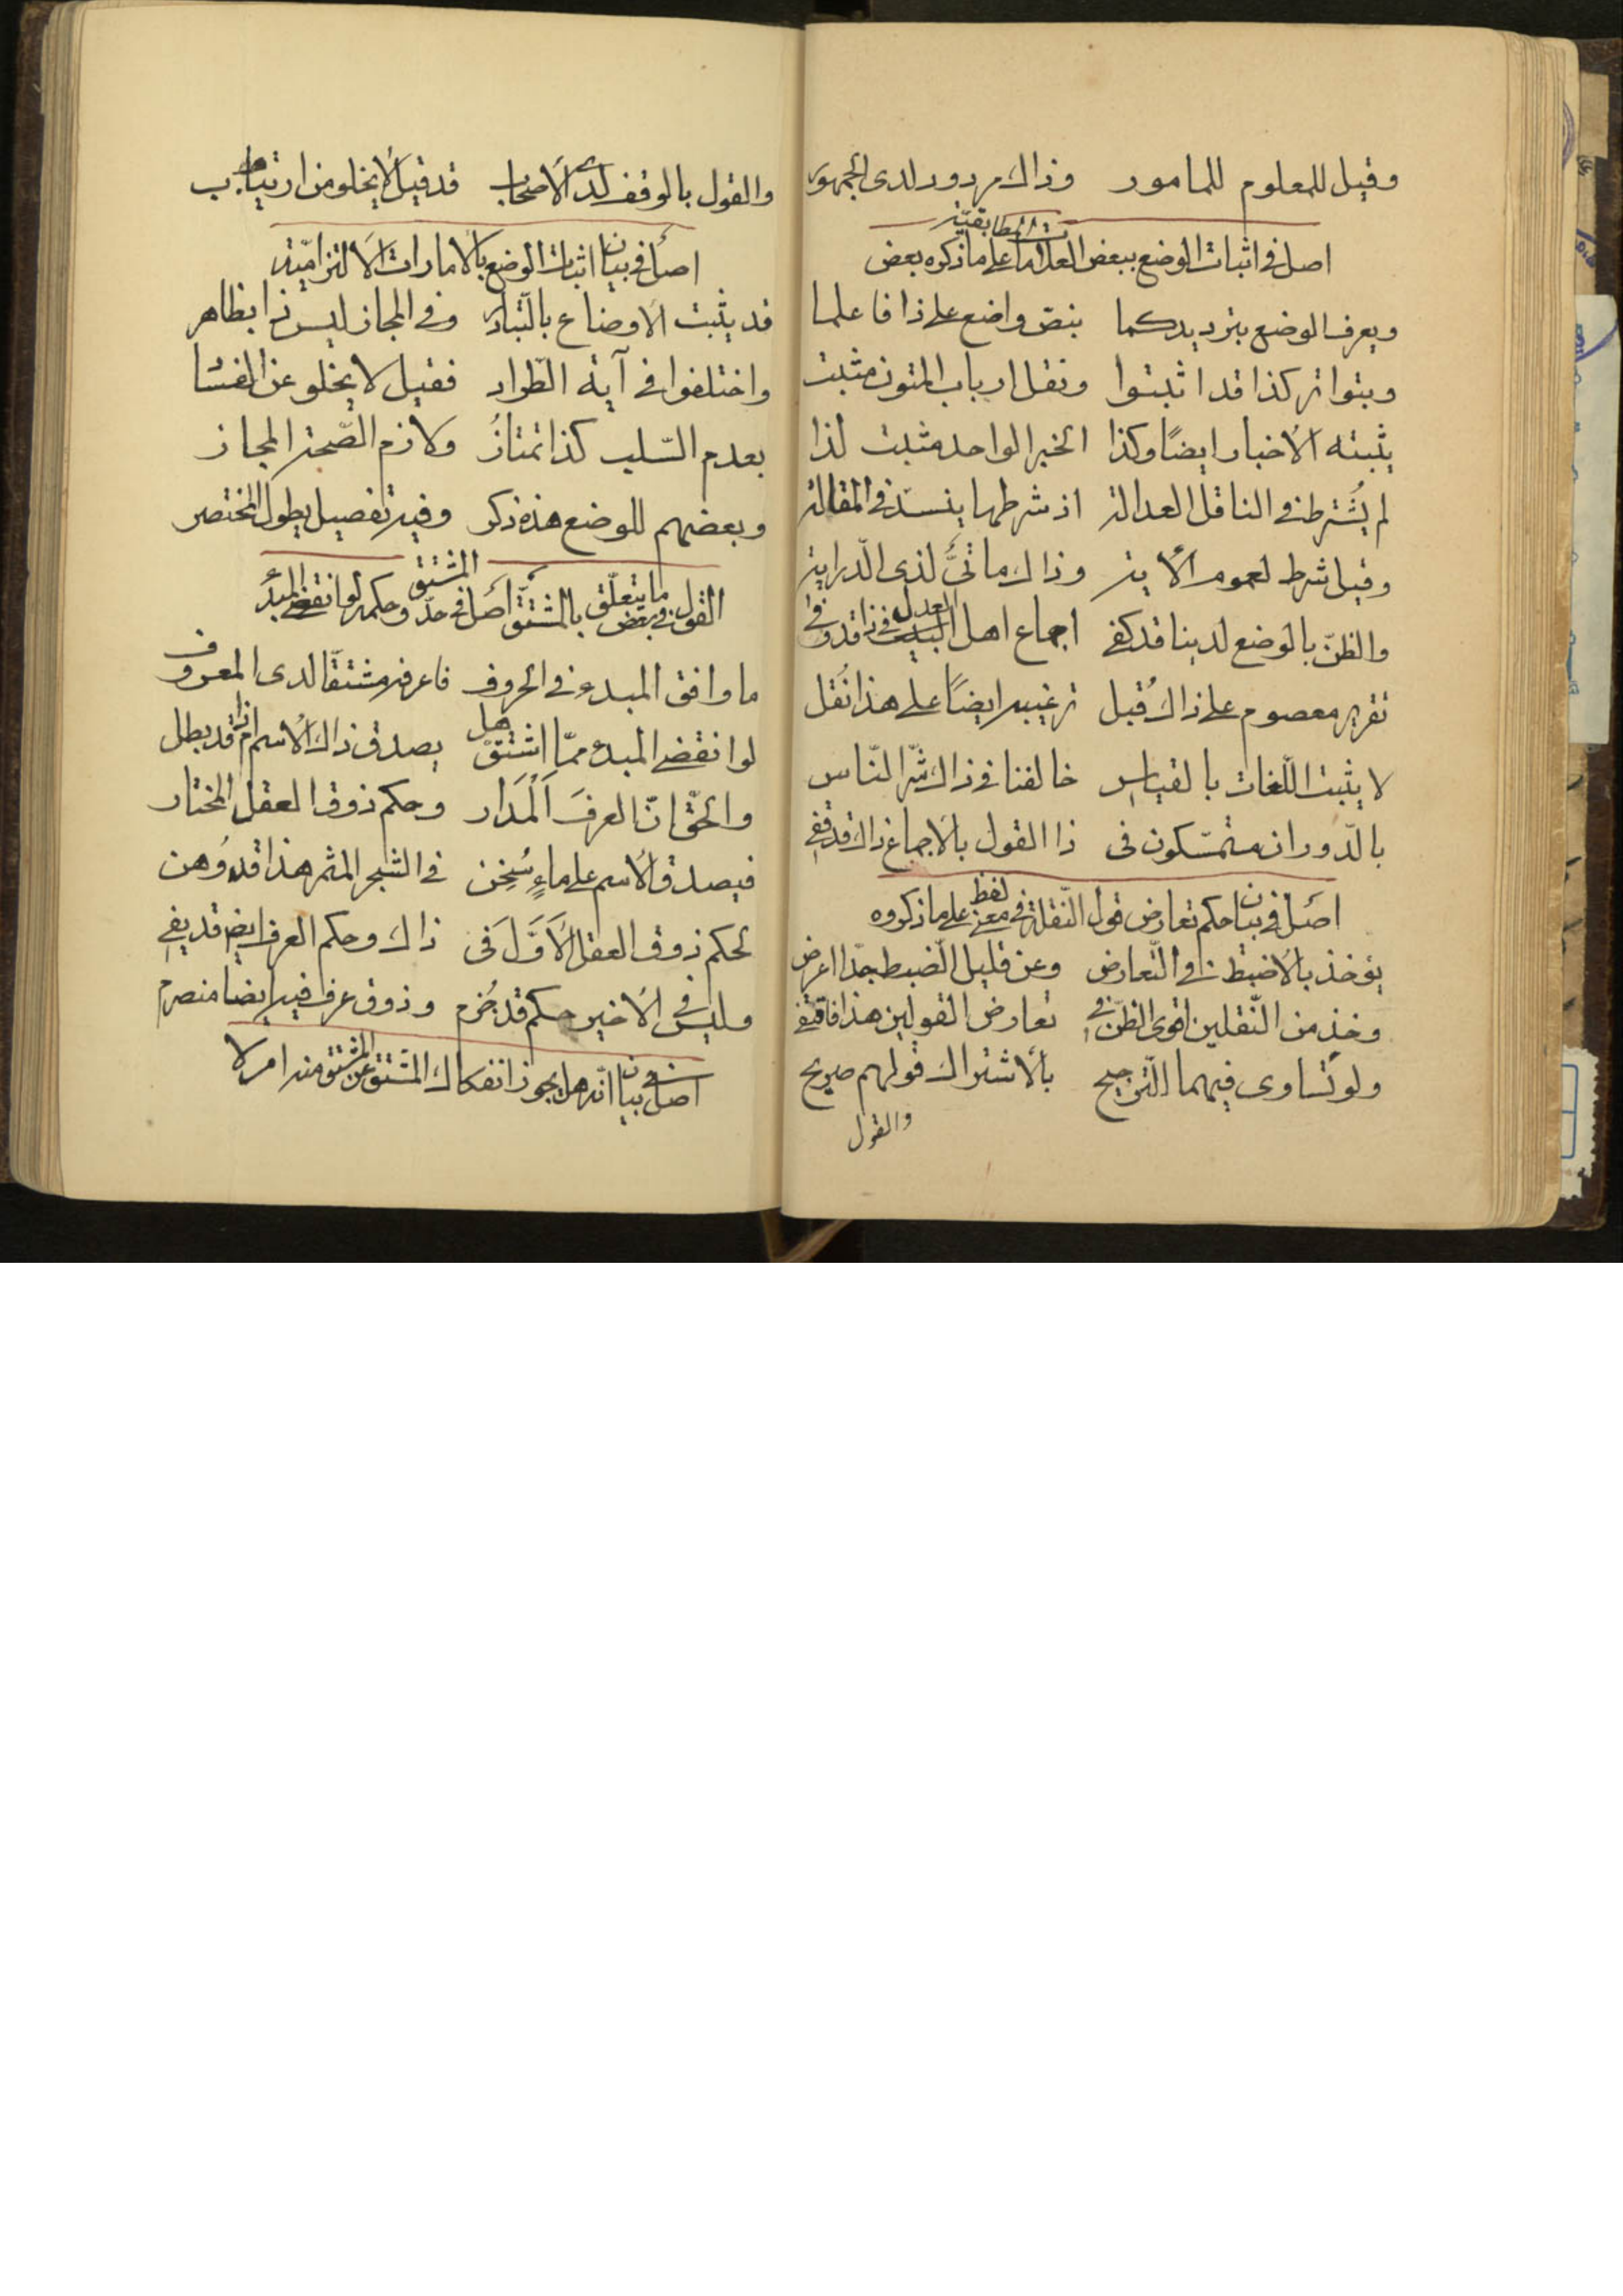 وقيل للمعلوم للمامور وذاك مردود لدى الجمهور
اصل في اثبات الوضع ببعض العلامات المطابقية على ما ذكره بعض
ويعرف الوضع بترديد كما بنص واضع على ذا فاعلما
وبتواتر كذا قد اثبتوا ونقل ارباب المتون مثبت
يثبته الأخبار ايضًا وكذا الخبر الواحد مثبت لذا
لم يُشترط في الناقل العدالة اذ شرطها ينسدّ في المقالة
وقيل شرط لعموم الأية وذاك ما تى لذى الدّراية
والظنّ بالوضع لدينا قد كفى اجماع اهل العدل في ذا قد وفى
تقرير معصوم على ذاك قُبل ترغيبه ايضًا على هذا نُقل
لا يثبت اللّغات بالقياس خالفنا في ذاك شرّ النّاس
بالدّوران متمسّكون في ذا القول بالاجماع ذاك قد قفى
اصل في بيان حكم تعارض قول النّقلة في معنى لفظ على ما ذكروه
يؤخذ بالاضبط في التّعارض وعن قليل الضبط جدّا اعرض
وخذ من النّقلين اقوى الظنّ في تعارض القولين هذا فاقتفى
ولو تساوى فيهما التّرجيح بالأشتراك قولهم صريح
والقول
والقول بالوقف لدى الاصحاب قد قيل لا يخلو من ارتياب
اصل في بيان اثبات الوضع بالامارات الالتزاميّة
قد يثبت الاوضاع بالتّبادر وفي المجاز ليس ذا بظاهر
واختلفوا في آية الطّراد فقيل لا يخلو عن الفساد
بعدم السّلب كذا تمتازُ ولازم الصّحة المجاز
وبعضهم للوضع هذه ذكر وفيه تفصيل يطول المختصر
القول في بعض ما يتعلّق بالمشتقّ اصل في حدّ المشتق وحكمه لو انقضى المبدأ
ما وافق المبدء في الحروف فاعرفه مشتقّا لدى المعروف
لو انقضى المبدء ممّا اشتقّ هل يصدق ذاك الأسم ام قد بطل
والحقّ انّ العرفَ اَلْمَدَار وحكم ذوق العقل المختار
فيصدق الأسم على ماءٍ سُخِن في الشجر المثمر هذا قد وُهن
لحكم ذوق العقل الأَوَّلَ فى ذاك وحكم العرف ايض قد يفي
وليس في الأخير حكم قد جُزم وذوق عرف فيه ايضا منصرم
اصل في بيان انّه هل يجوز انفكاك المشتق عن المشتق منه ام لا